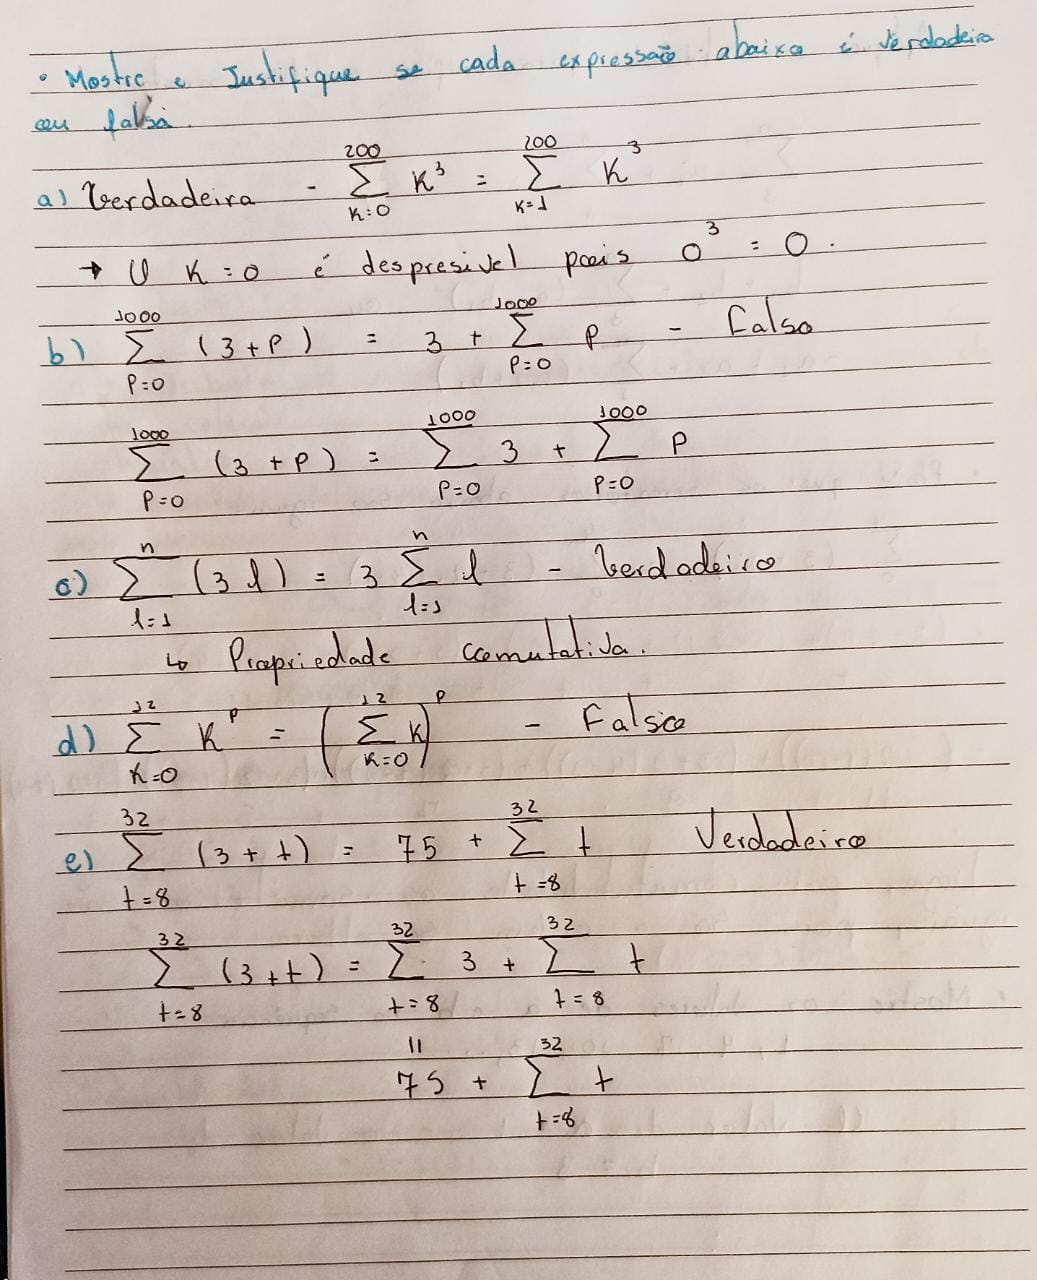 • Mostre e Justifique se cada expressão abaixo é verdadeira
ou falsa.
a) Verdadeira - \sum_{K=0}^{200} K^3 = \sum_{K=1}^{200} K^3
→ O K=0 é despresivel pois 0^3 = 0.
b) \sum_{P=0}^{1000} (3+P) = 3 + \sum_{P=0}^{1000} P - Falso
\sum_{P=0}^{1000} (3+P) = \sum_{P=0}^{1000} 3 + \sum_{P=0}^{1000} P
c) \sum_{l=1}^{n} (3l) = 3 \sum_{l=1}^{n} l - Verdadeiro
↳ Propriedade comutativa.
d) \sum_{K=0}^{12} K^P = (\sum_{K=0}^{12} K)^P - Falso
e) \sum_{t=8}^{32} (3+t) = 75 + \sum_{t=8}^{32} t Verdadeiro
\sum_{t=8}^{32} (3+t) = \sum_{t=8}^{32} 3 + \sum_{t=8}^{32} t
11
75 + \sum_{t=8}^{32} t